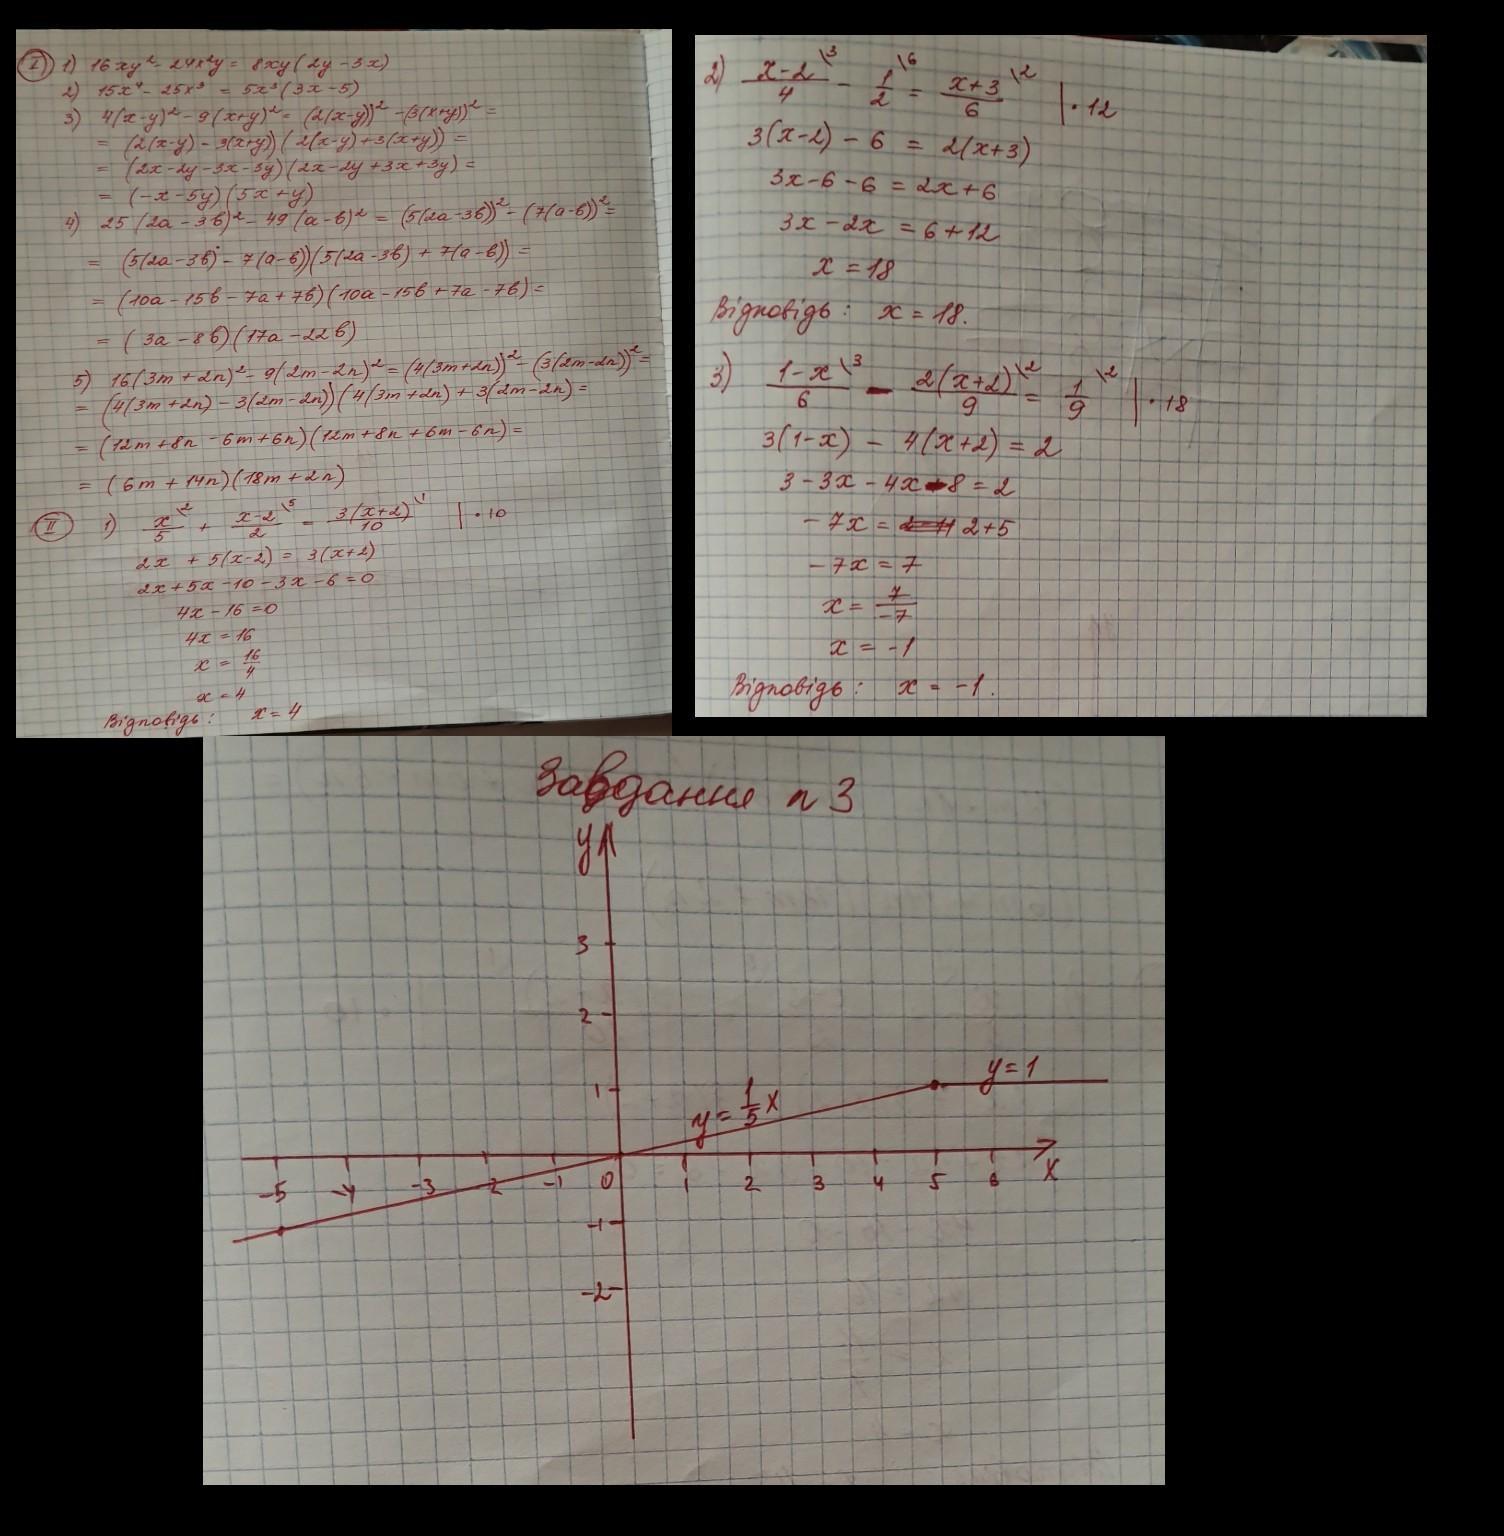 I 1) 16xy² - 24x²y = 8xy(2y - 3x)
2) 15x⁴ - 25x³ = 5x³(3x - 5)
3) 4(x-y)² - 9(x+y)² = (2(x-y))² - (3(x+y))² =
= (2(x-y) - 3(x+y))(2(x-y) + 3(x+y)) =
= (2x - 2y - 3x - 3y)(2x - 2y + 3x + 3y) =
= (-x - 5y)(5x + y)
4) 25(2a - 3b)² - 49(a - b)² = (5(2a - 3b))² - (7(a - b))² =
= (5(2a - 3b) - 7(a - b))(5(2a - 3b) + 7(a - b)) =
= (10a - 15b - 7a + 7b)(10a - 15b + 7a - 7b) =
= (3a - 8b)(17a - 22b)
5) 16(3m + 2n)² - 9(2m - 2n)² = (4(3m + 2n))² - (3(2m - 2n))² =
= (4(3m + 2n) - 3(2m - 2n))(4(3m + 2n) + 3(2m - 2n) =
= (12m + 8n - 6m + 6n)(12m + 8n + 6m - 6n) =
= (6m + 14n)(18m + 2n)
II 1) x/5 \2 + x-2/2 \5 = 3(x+2)/10 \1 | · 10
2x + 5(x-2) = 3(x+2)
2x + 5x - 10 - 3x - 6 = 0
4x - 16 = 0
4x = 16
x = 16/4
x = 4
Відповідь: x = 4
2) x-2/4 \3 - 1/2 \6 = x+3/6 \2 | · 12
3(x-2) - 6 = 2(x+3)
3x - 6 - 6 = 2x + 6
3x - 2x = 6 + 12
x = 18
Відповідь: x = 18.
3) 1-x/6 \3 - 2(x+2)/9 \2 = 1/9 \2 | · 18
3(1-x) - 4(x+2) = 2
3 - 3x - 4x - 8 = 2
-7x = 2 + 5
-7x = 7
x = 7/-7
x = -1
Відповідь: x = -1.
Завдання n 3
y
3
2
1
y = 1
y = 1/5 x
-5 -4 -3 -2 -1 0 1 2 3 4 5 6 x
-1
-2